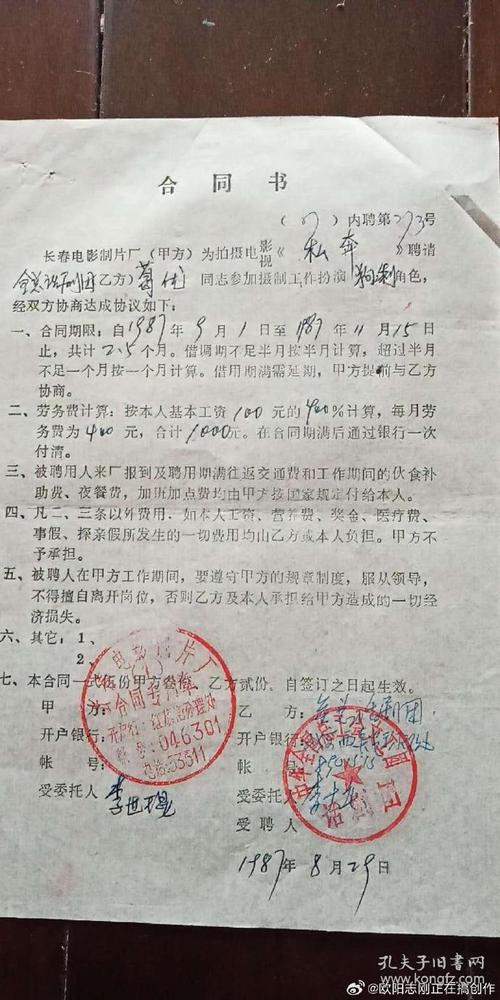 合同书
(87)内聘第273号
长春电影制片厂(甲方)为拍摄电影视《私奔》聘请
全总话剧团(乙方)葛优 同志参加摄制工作扮演 狗剩 角色,
经双方协商达成协议如下:
一、合同期限:自1987年9月1日至1987年11月15日
止,共计2.5个月。借调期不足半月按半月计算,超过半月
不足一个月按一个月计算。借用期满需延期,甲方提前与乙方
协商。
二、劳务费计算:按本人基本工资100元的400%计算,每月劳
务费为400元,合计1000元。在合同期满后通过银行一次
付清。
三、被聘用人来厂报到及聘用期满往返交通费和工作期间的伙食补
助费、夜餐费,加班加点费均由甲方按国家规定付给本人。
四、凡二、三条以外费用.如本人工资、营养费、奖金、医疗费、
事假、探亲假所发生的一切费用均由乙方或本人负担。甲方不
予承担。
五、被聘人在甲方工作期间,要遵守甲方的规章制度,服从领导,
不得擅自离开岗位,否则乙方及本人承担给甲方造成的一切经
济损失。
六、其它:1、
2、
七、本合同一式伍份甲方叁份,乙方贰份,自签订之日起生效。
甲方: 乙方:全总话剧团
开户银行: 开户银行:
帐号: 帐号:
受委托人 李世琨 受委托人
受聘人
1987年8月29日
电影制片厂
合同专用章
046301
电话53311
话剧团
孔夫子旧书网
@欧阳志刚正在搞创作
kongfz.com